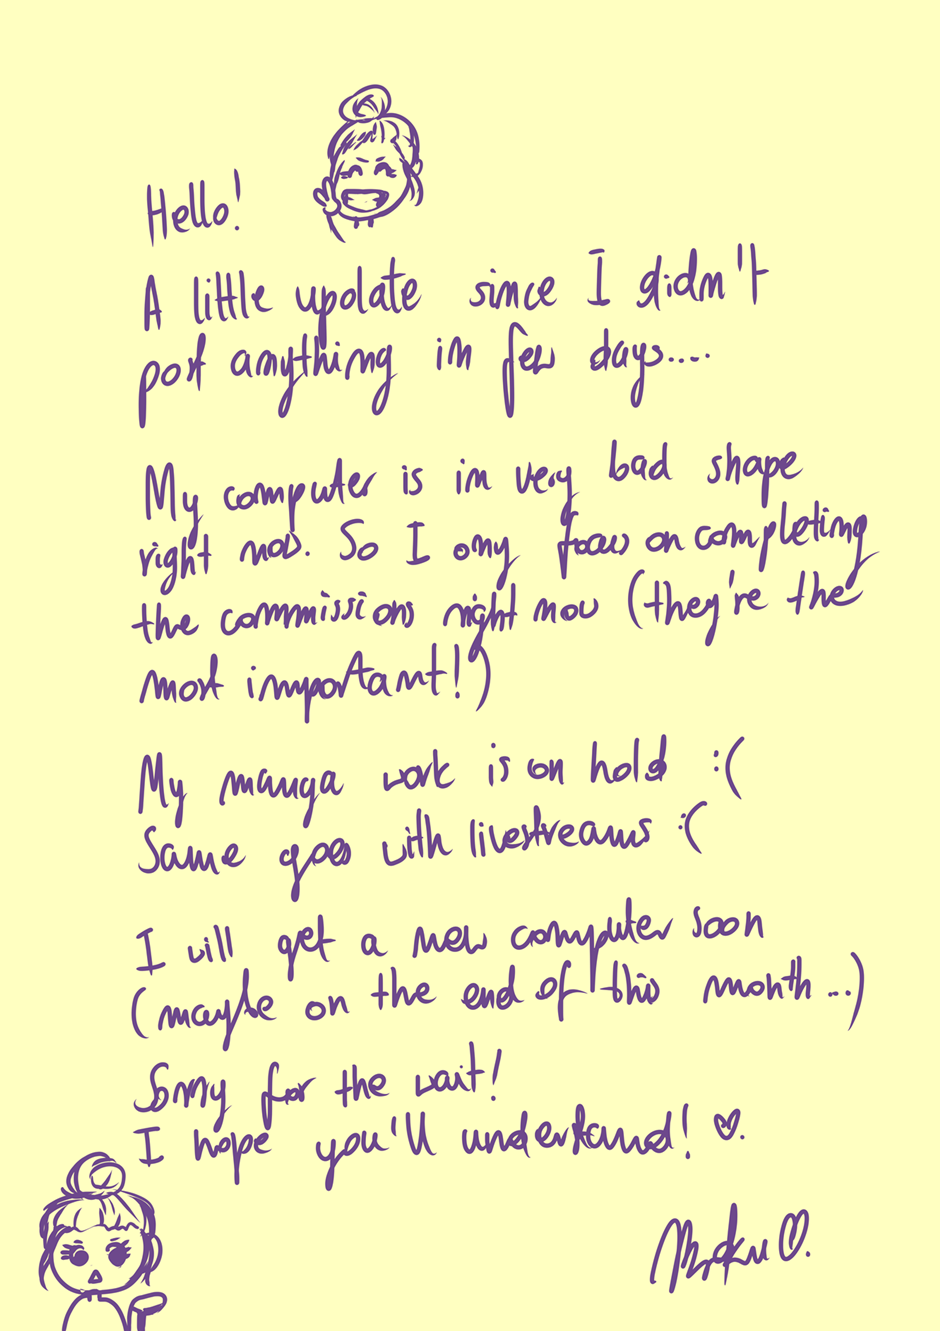 Hello!
A little update since I didn't
post anything in few days....
My computer is in very bad shape
right now. So I ony focus on completing
the commissions right now (they're the
most important!)
My manga work is on hold :(
Same goes with livestreams :(
I will get a new computer soon
(maybe on the end of this month...)
Sorry for the wait!
I hope you'll understand! ♥.